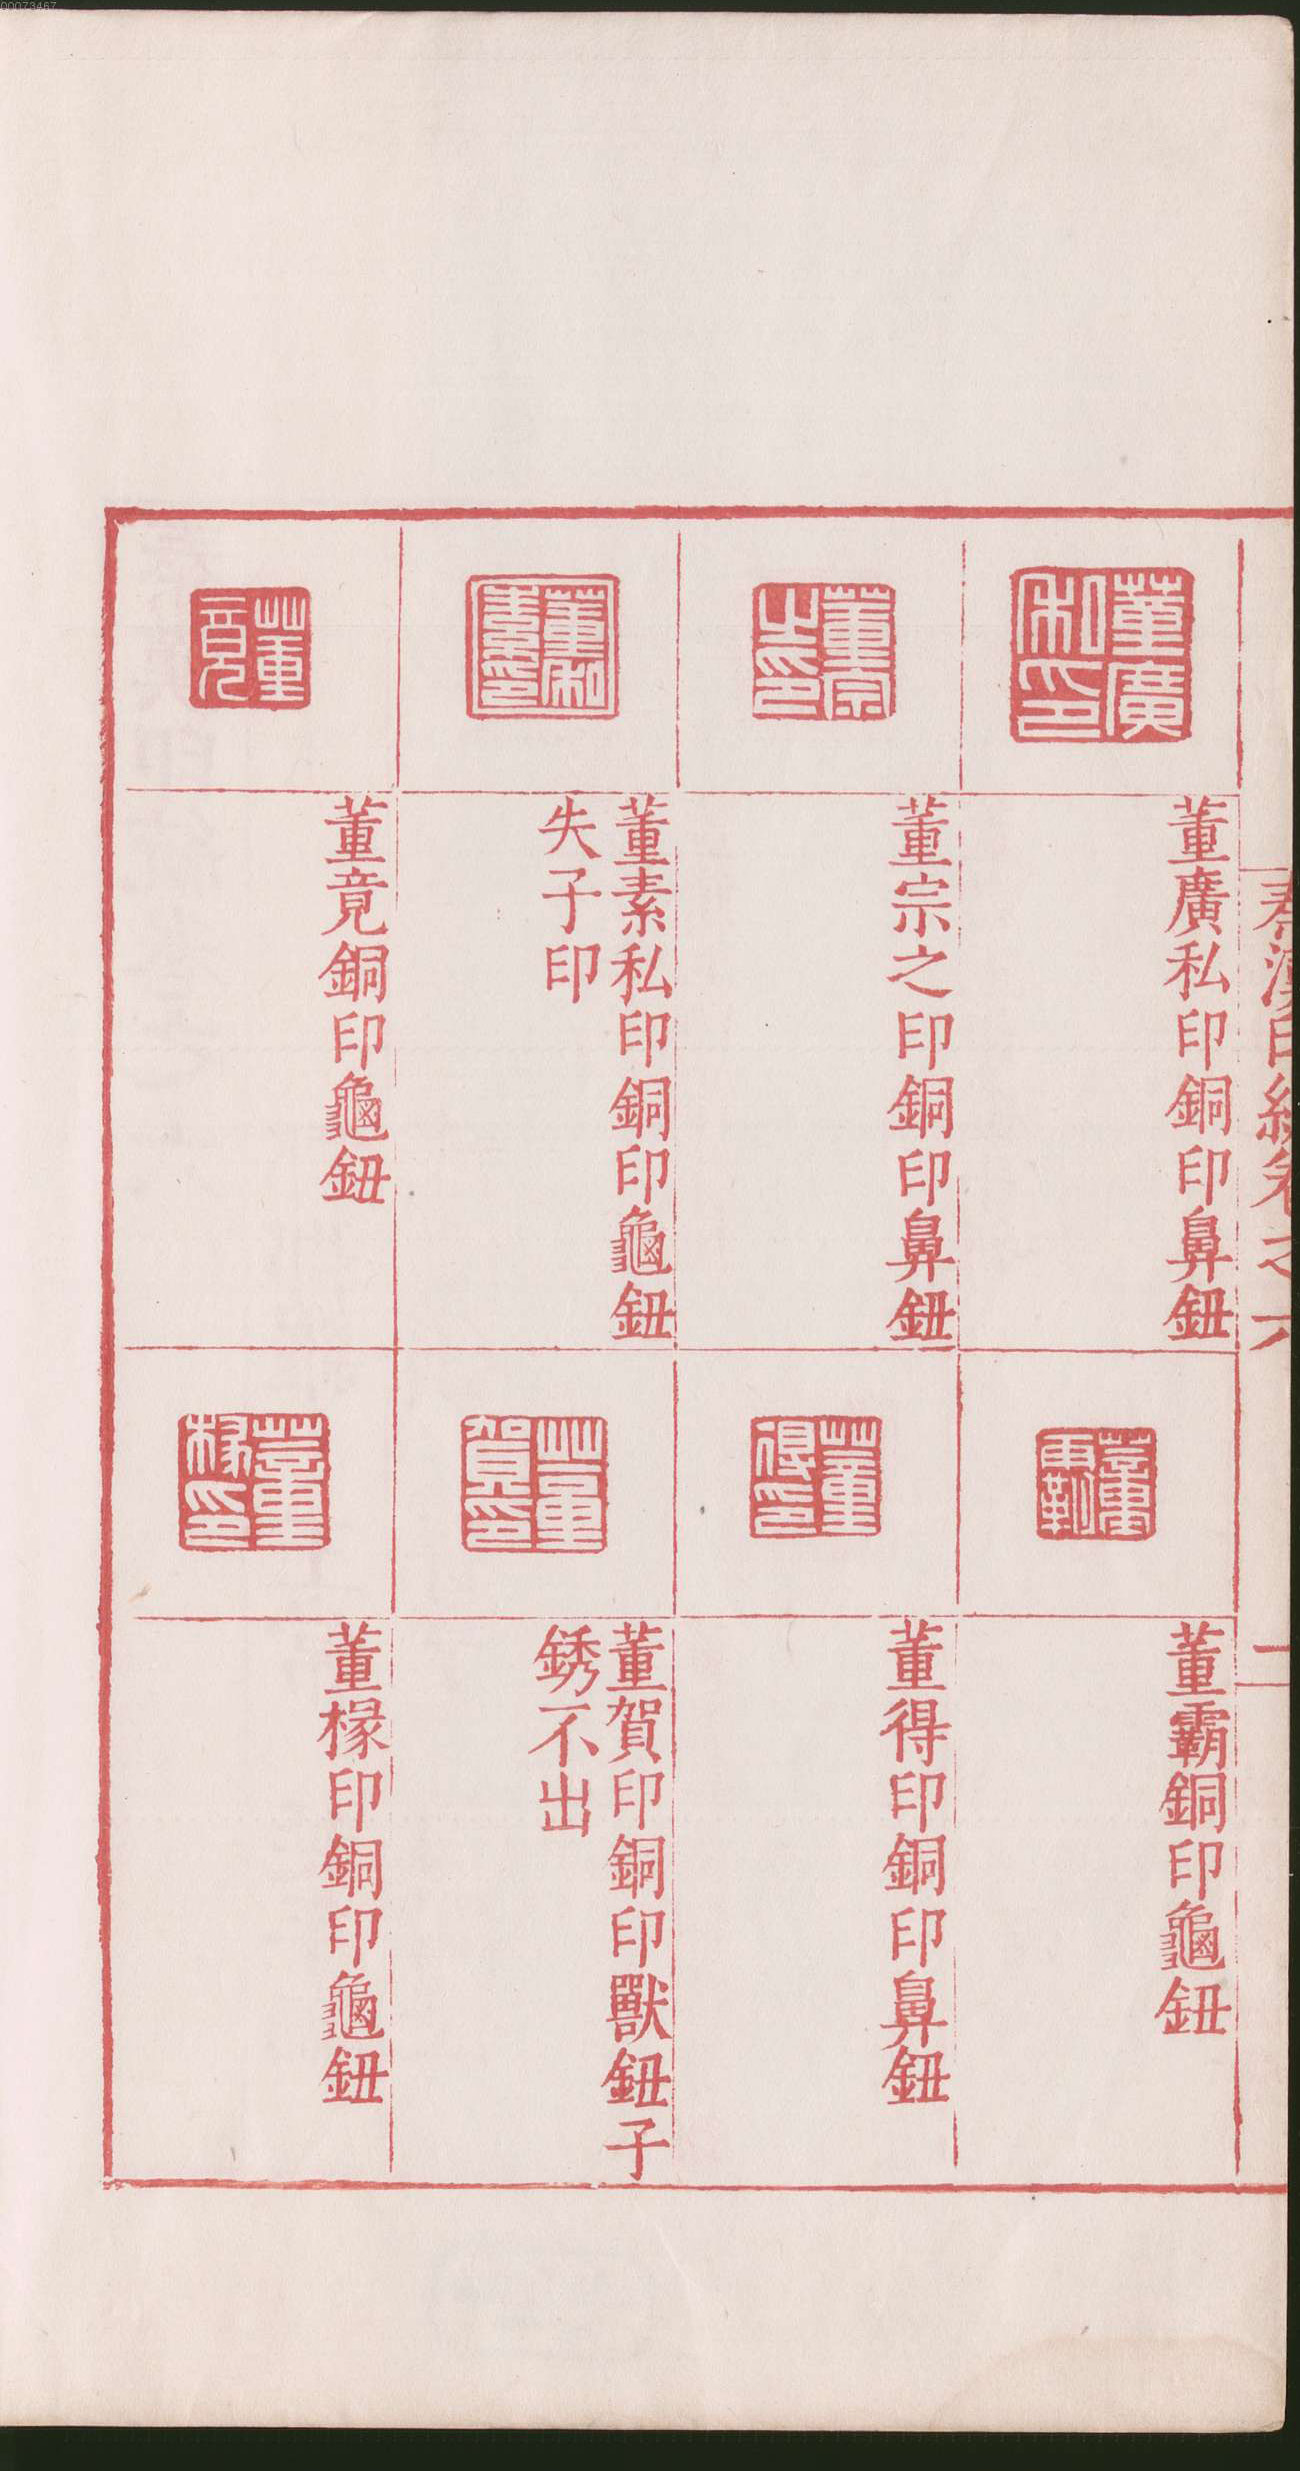 00073467
秦漢印統卷之六
二
董廣私印
董廣私印銅印鼻鈕
董霸
董霸銅印龜鈕
董宗之印
董宗之印銅印鼻鈕
董得印
董得印銅印鼻鈕
董素私印
董素私印銅印龜鈕
失子印
董賀印
董賀印銅印獸鈕子
銹不出
董竟
董竟銅印龜鈕
董椽印
董椽印銅印龜鈕